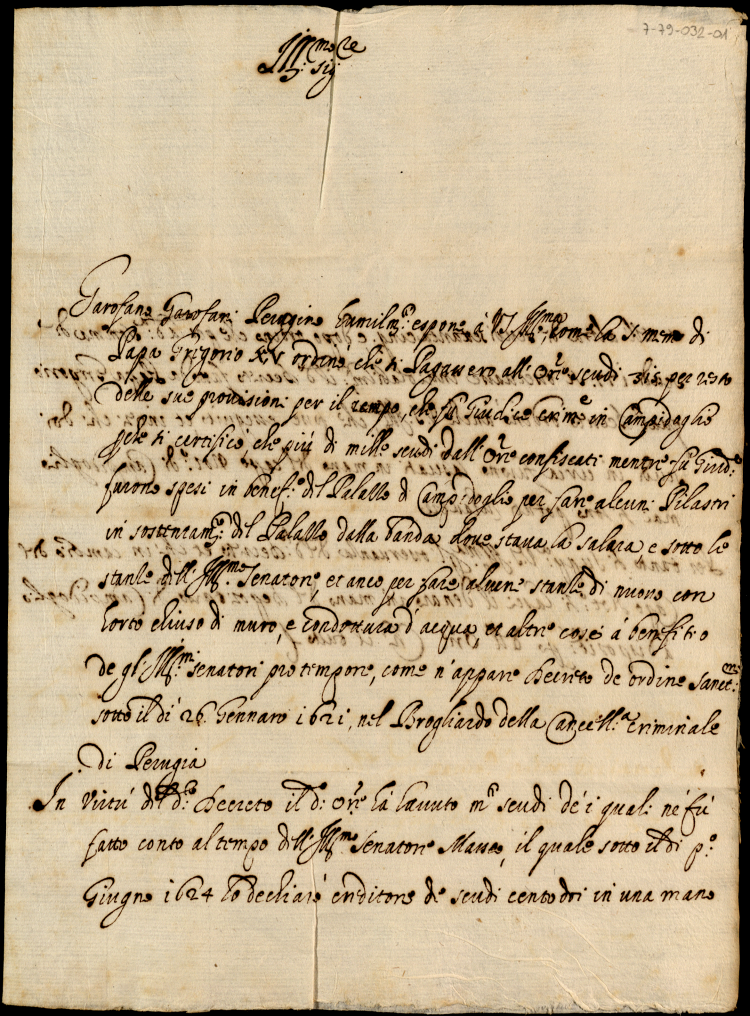 7-79-032-01
Ill.mo Sig.re
Garofano Garofani Perugino humilm.e espone à V.S. Ill.ma come la S. mem. di
Papa Grigorio XV ordinò che si Pagassero all' Or.re scudi 315 per resto
delle sue provisioni per il tempo, che fù Giudice Crim.e in Campidoglio
perche si certificò, che più di mille scudi dall' Or.re confiscati mentre fù Giud.e
furono spesi in benef.o del Palazzo di Campidoglio per fare alcuni Pilastri
in sostentam.to del Palazzo dalla banda dove stava la salara e sotto le
stanze dell' Ill.mo Senatore, et anco per fare alcune stanze di nuovo con
horto chiuso di muro, e condottura d'acqua, et altre cose à benefitio
de gl' Ill.mi senatori pro tempore, come n'appare Decreto de ordine Sanct.mi
sotto il dì 26 Gennaro 1621, nel Brogliardo della Cancell.a Criminale
di Perugia
In virtù del d.o Decreto il d.o Or.re hà havuto m.ti scudi de i quali ne fù
fatto conto al tempo dell' Ill.mo Senatore Masseo, il quale sotto il dì p.o
Giugno 1624 lo dechiarò creditore de scudi centodoi in una mano